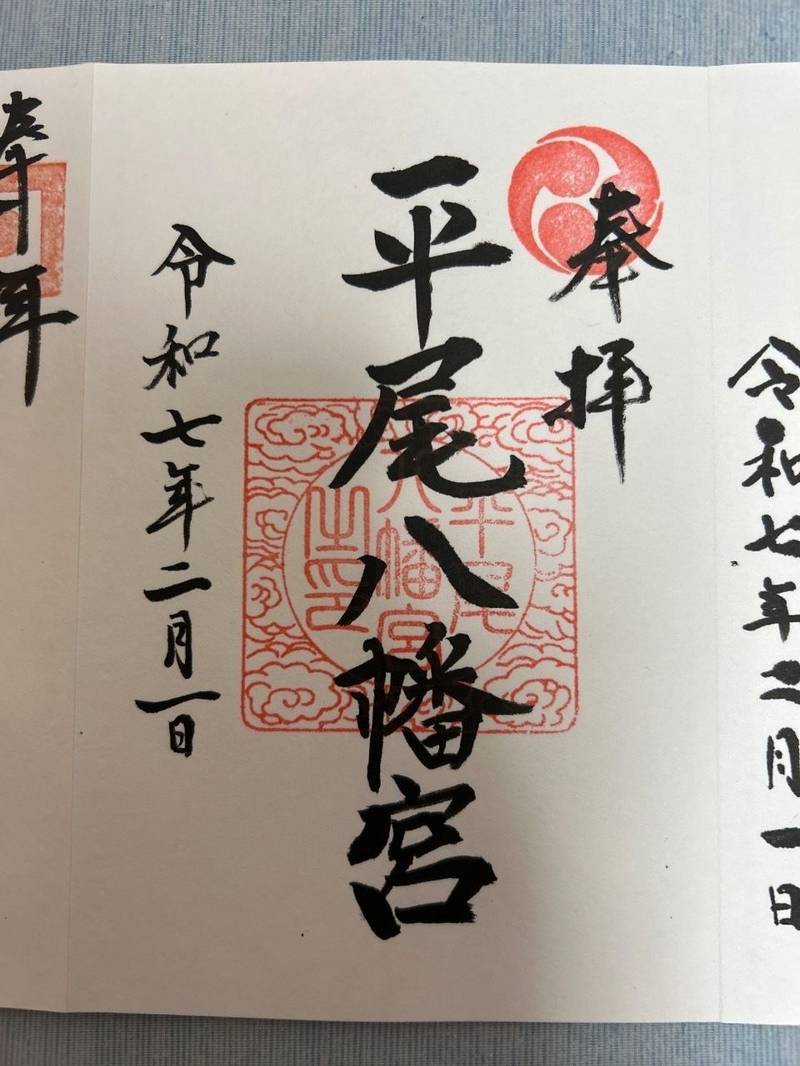 令和七年二月一日
奉拝
平尾八幡宮
平尾
八幡宮
之印
令和七年二月一日